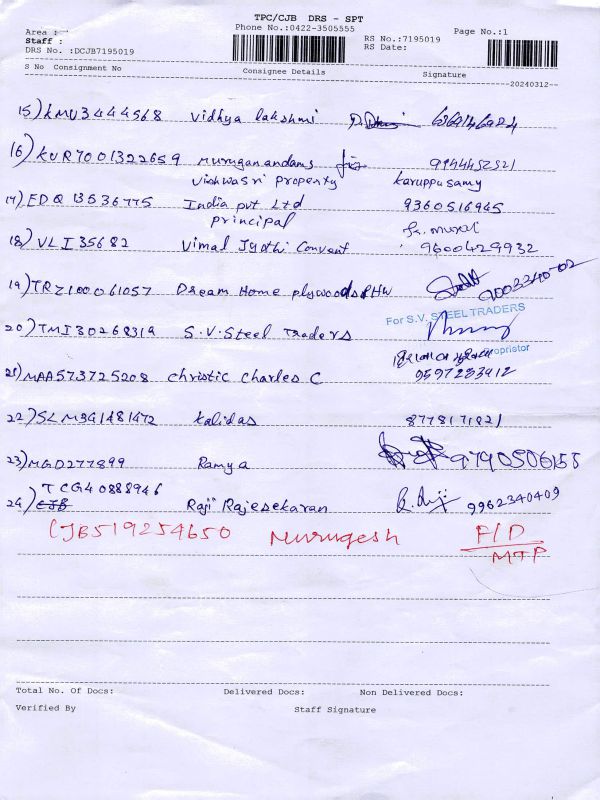 TPC/CJB DRS - SPT
Area :
Phone No.:0422-3505555
Page No.:1
Staff :
RS No.:7195019
DRS No. :DCJB7195019
RS Date:
S No Consignment No Consignee Details Signature
20240312
15) KMU3444568 Vidhya lakshmi
16) KUR7001322659 Muruganandams 9944452521
Vishwasri property Karuppusamy
17) EDQ13536775 India pvt Ltd 9360516945
principal
18) VLI35682 Vimal Jyothi Convent 9600429932
19) TRZ100061057 Dream Home plywoods PHW 9003340-02
For S.V. STEEL TRADERS
20) TMI30268319 S.V. Steel Traders
Proprietor
21) MAA573725208 Christic Charles C 9597233912
22) SLM391481472 Kalidas 8778171821
23) MGD277899 Ramya 9790506155
TCG40888946
24) CJB Raji Rajesekaran 9962340409
CJB519254650 Murugesh F/D
MTP
Total No. Of Docs: Delivered Docs: Non Delivered Docs:
Verified By Staff Signature